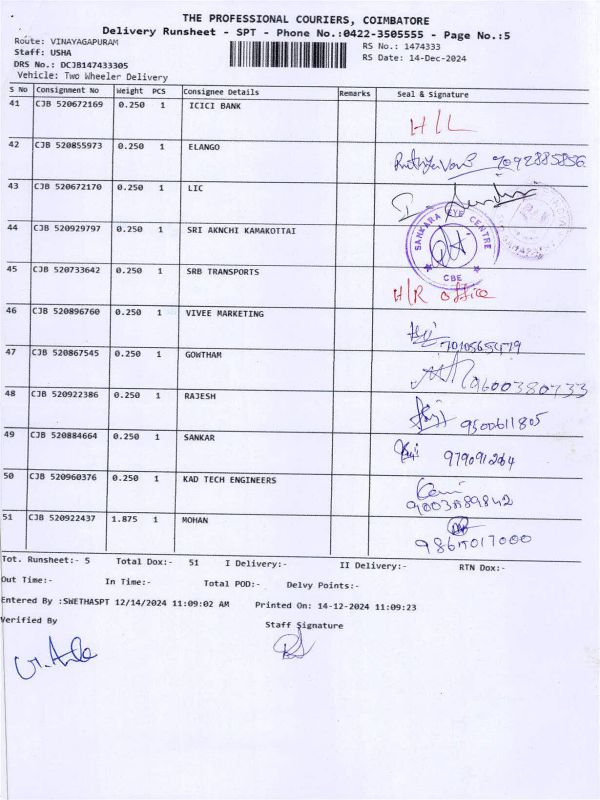 THE PROFESSIONAL COURIERS, COIMBATORE
Delivery Runsheet - SPT - Phone No.:0422-3505555 - Page No.:5
Route: VINAYAGAPURAM
Staff: USHA
DRS No.: DCJB147433305
Vehicle: Two Wheeler Delivery
RS No.: 1474333
RS Date: 14-Dec-2024
S No Consignment No Weight PCS Consignee Details Remarks Seal & Signature
41 CJB 520672169 0.250 1 ICICI BANK H/L
42 CJB 520855973 0.250 1 ELANGO 9092885856
43 CJB 520672170 0.250 1 LIC
44 CJB 520929797 0.250 1 SRI AKNCHI KAMAKOTTAI
SANKARA EYE CENTRE
CBE
45 CJB 520733642 0.250 1 SRB TRANSPORTS H/R office
46 CJB 520896760 0.250 1 VIVEE MARKETING
47 CJB 520867545 0.250 1 GOWTHAM 9600380733
48 CJB 520922386 0.250 1 RAJESH 9500611805
49 CJB 520884664 0.250 1 SANKAR
50 CJB 520960376 0.250 1 KAD TECH ENGINEERS
51 CJB 520922437 1.875 1 MOHAN
Tot. Runsheet:- 5 Total Dox:- 51 I Delivery:- II Delivery:- RTN Dox:-
Out Time:- In Time:- Total POD:- Delvy Points:-
Entered By :SWETHASPT 12/14/2024 11:09:02 AM Printed On: 14-12-2024 11:09:23
Verified By
Staff Signature